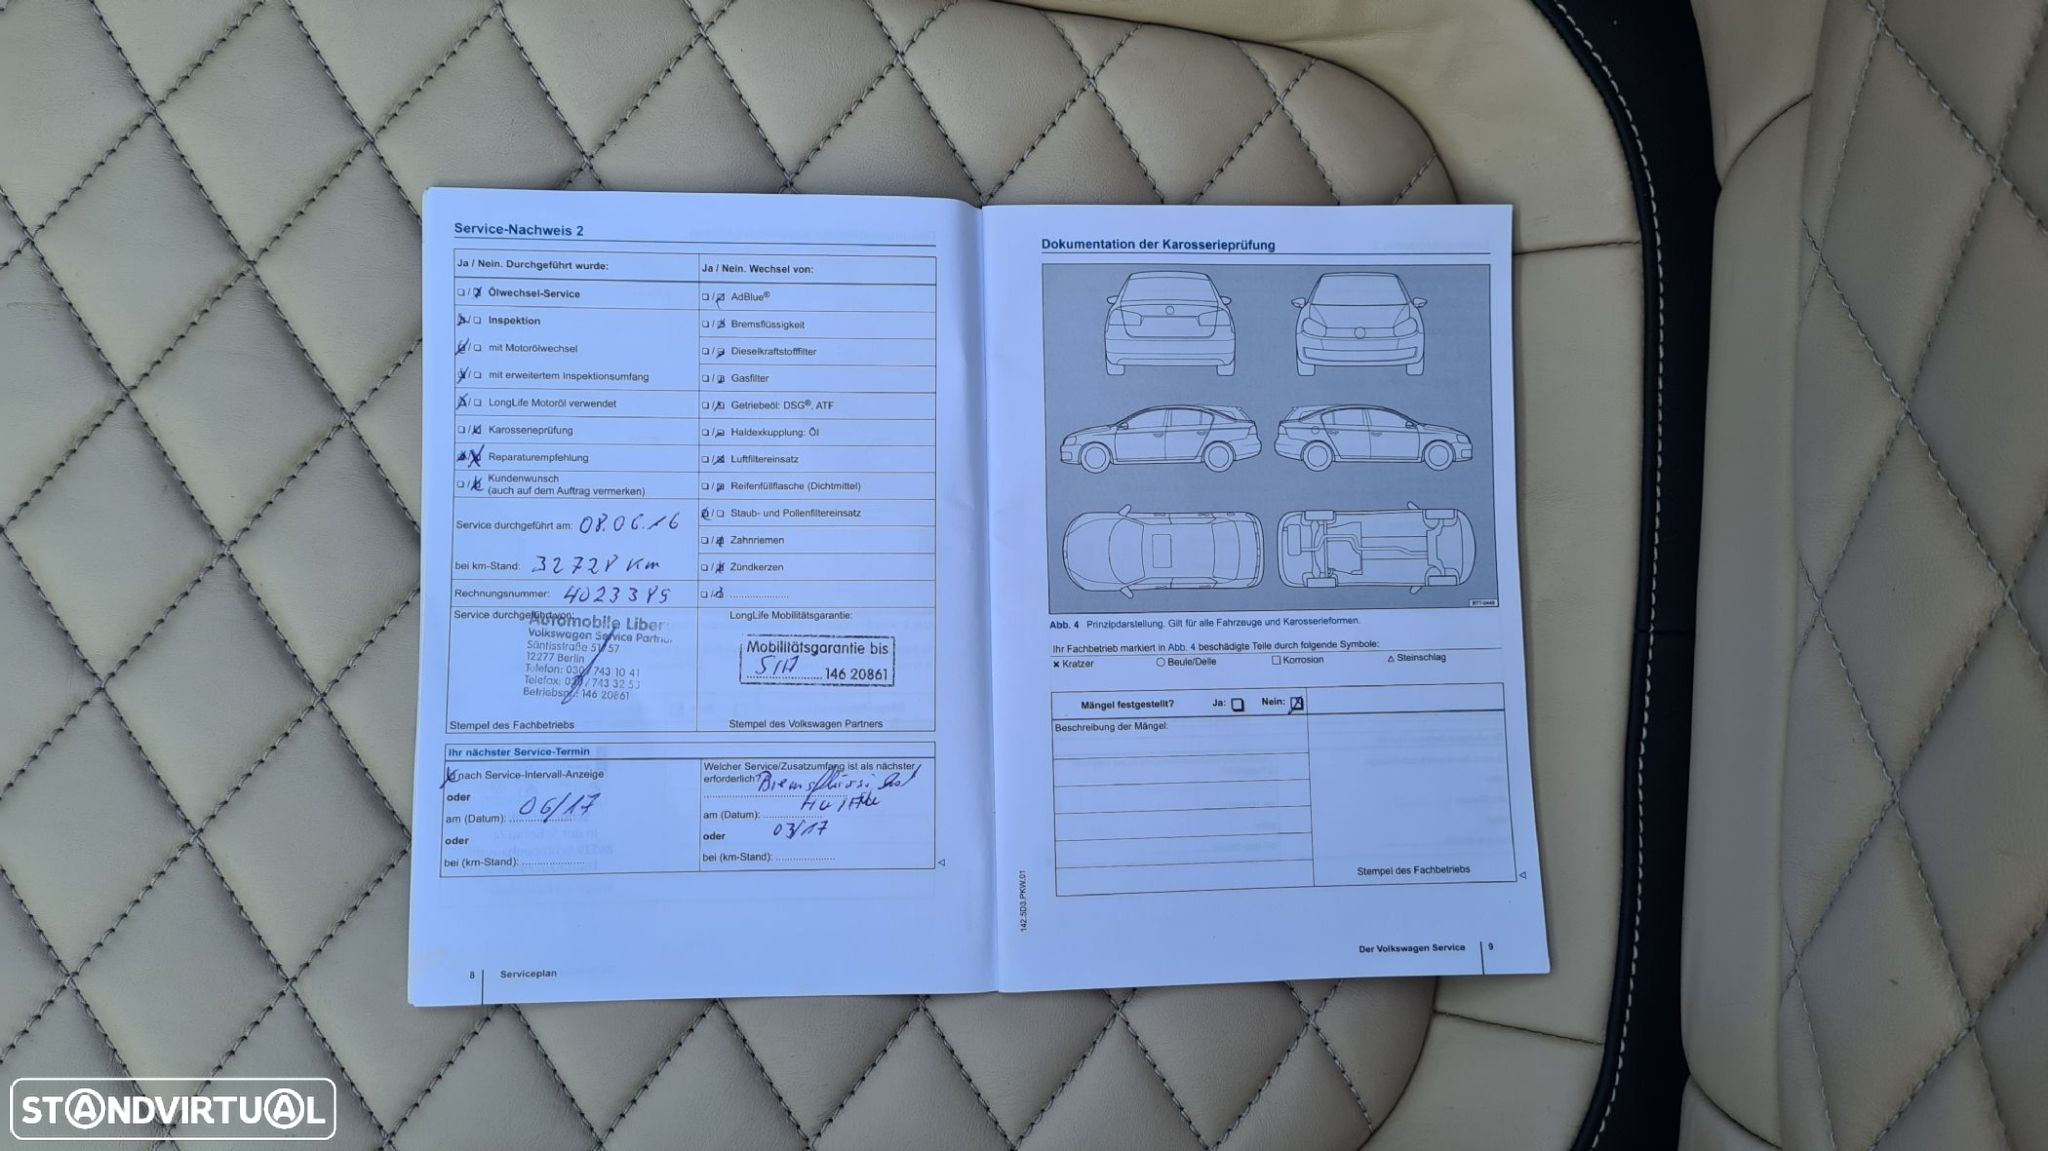 Service-Nachweis 2
Ja / Nein. Durchgeführt wurde:
Ölwechsel-Service
Inspektion
mit Motorölwechsel
mit erweitertem Inspektionsumfang
LongLife Motoröl verwendet
Karosserieprüfung
Reparaturempfehlung
Kundenwunsch
(auch auf dem Auftrag vermerken)
Service durchgeführt am: 08.06.16
bei km-Stand: 32728 Km
Rechnungsnummer: 4023389
Service durchgeführt von:
Automobile Liber
Volkswagen Service Partner
Säntisstraße 51/57
12277 Berlin
Telefon: 030/743 10 41
Telefax: 030/743 32 53
Betriebsnr.: 146 20861
Stempel des Fachbetriebs
Ja / Nein. Wechsel von:
AdBlue®
Bremsflüssigkeit
Dieselkraftstofffilter
Gasfilter
Getriebeöl: DSG®, ATF
Haldexkupplung: Öl
Luftfiltereinsatz
Reifenfüllflasche (Dichtmittel)
Staub- und Pollenfiltereinsatz
Zahnriemen
Zündkerzen
LongLife Mobilitätsgarantie:
Mobilitätsgarantie bis
146 20861
Stempel des Volkswagen Partners
Ihr nächster Service-Termin
nach Service-Intervall-Anzeige
oder
am (Datum): 06/17
oder
bei (km-Stand):
Welcher Service/Zusatzumfang ist als nächster
erforderlich?
am (Datum):
03/17
oder
bei (km-Stand):
8 Serviceplan
Dokumentation der Karosserieprüfung
Abb. 4 Prinzipdarstellung. Gilt für alle Fahrzeuge und Karosserieformen.
Ihr Fachbetrieb markiert in Abb. 4 beschädigte Teile durch folgende Symbole:
Kratzer Beule/Delle Korrosion Steinschlag
Mängel festgestellt? Ja: Nein:
Beschreibung der Mängel:
Stempel des Fachbetriebs
142.5D3.PKW.01
Der Volkswagen Service 9
STANDVIRTUAL